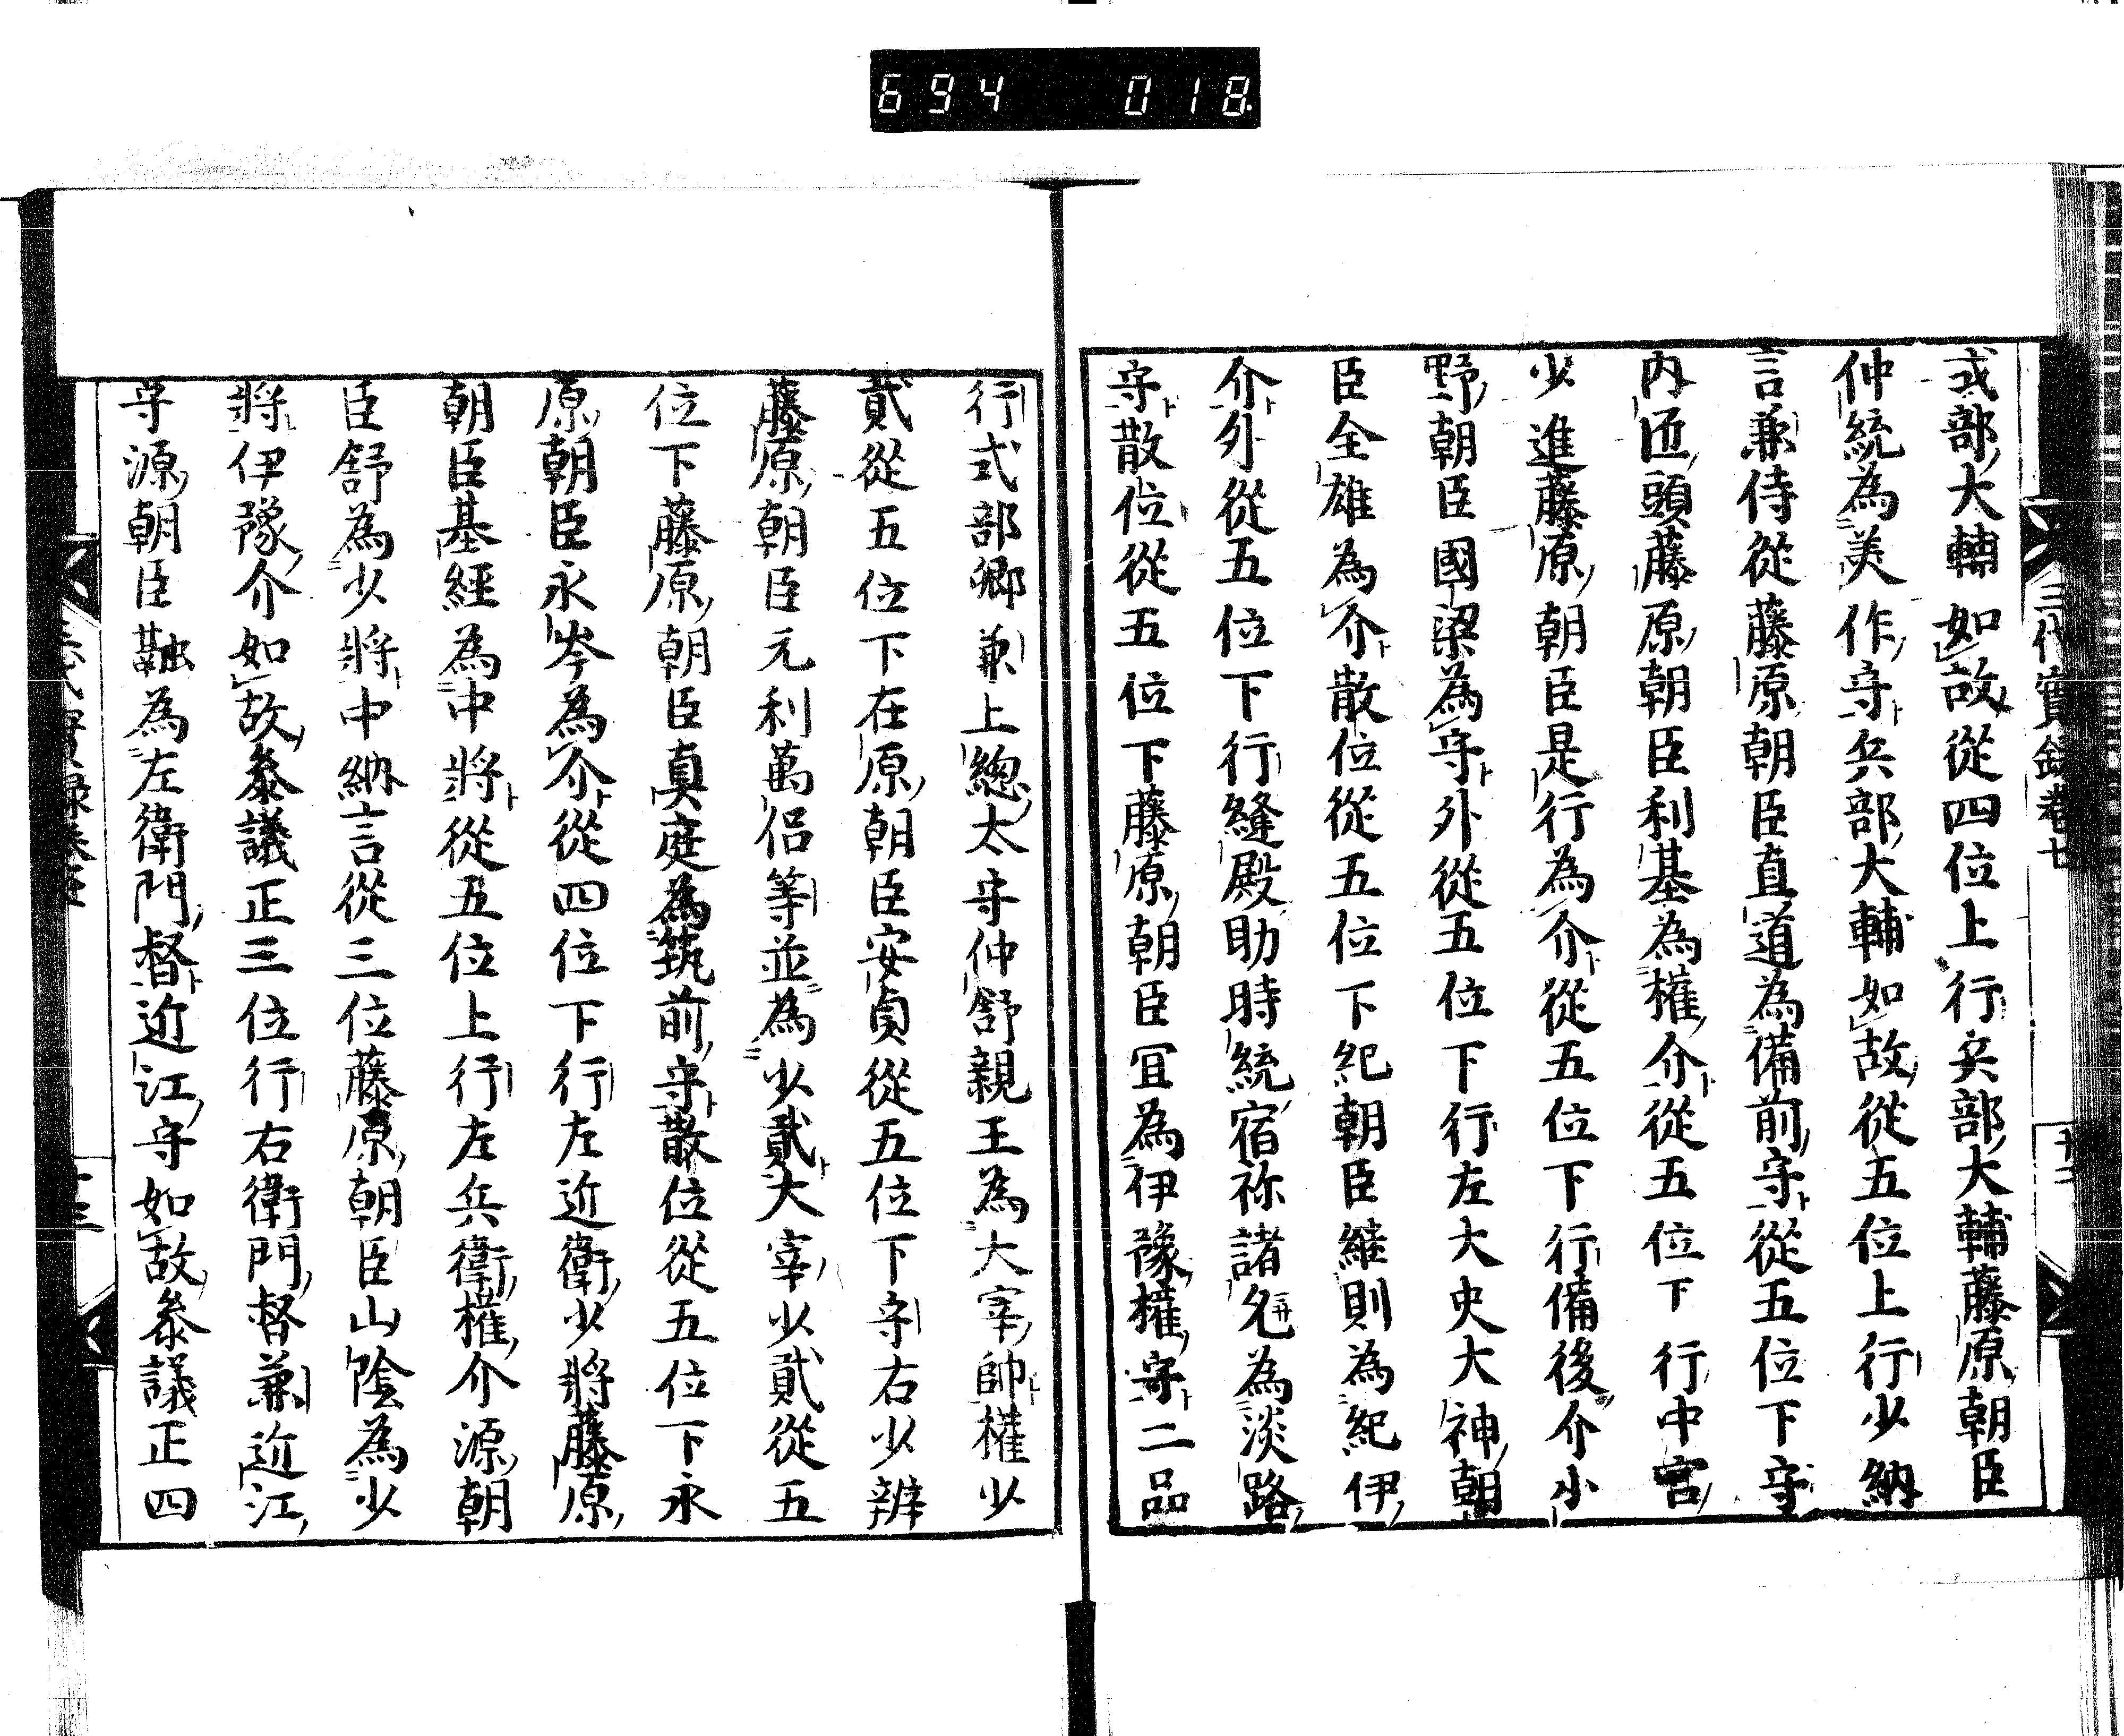 694 018
三代實録卷七
十二
式部大輔如故從四位上行兵部大輔藤原朝臣
仲統為美作守兵部大輔如故從五位上行少納
言兼侍從藤原朝臣直道為備前守從五位下守
内匠頭藤原朝臣利基為權介從五位下行中宮
少進藤原朝臣是行為介從五位下行備後介小
野朝臣國梁為守外從五位下行左大史大神朝
臣全雄為介散位從五位下紀朝臣継則為紀伊
介外從五位下行縫殿助時統宿祢諸兄為淡路
守散位從五位下藤原朝臣冝為伊豫權守二品
行式部卿兼上總太守仲舒親王為大宰帥權少
貳從五位下在原朝臣安貞從五位下守右少辨
藤原朝臣元利萬侶等並為少貳大宰少貳從五
位下藤原朝臣真庭為筑前守散位從五位下永
原朝臣永岑為介從四位下行左近衛少將藤原
朝臣基經為中將從五位上行左兵衛權介源朝
臣舒為少將中納言從三位藤原朝臣山陰為少
將伊豫介如故叅議正三位行右衛門督兼近江
守源朝臣融為左衛門督近江守如故叅議正四